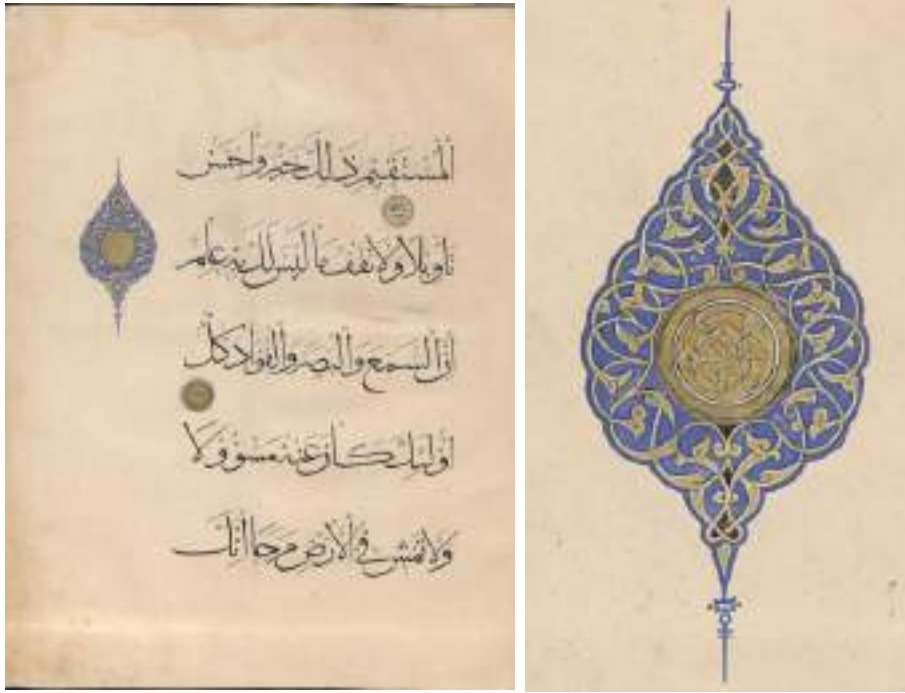 المستقيم ذلك خير واحسن
تاويلا ولا تقف ما ليس لك به علم
ان السمع والبصر والفواد كل
اوليك كان عنه مسوولا
ولا تمش في الارض مرحا انك